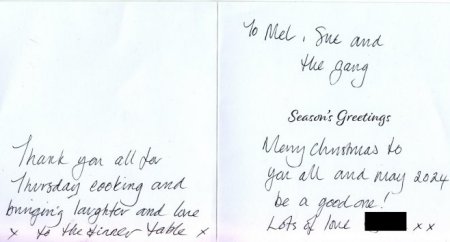 Thank you all for
Thursday cooking and
bringing laughter and love
x to the dinner table x
To Mel, Sue and
the gang
Season's Greetings
Merry Christmas to
you all and may 2024
be a good one!
Lots of love x x